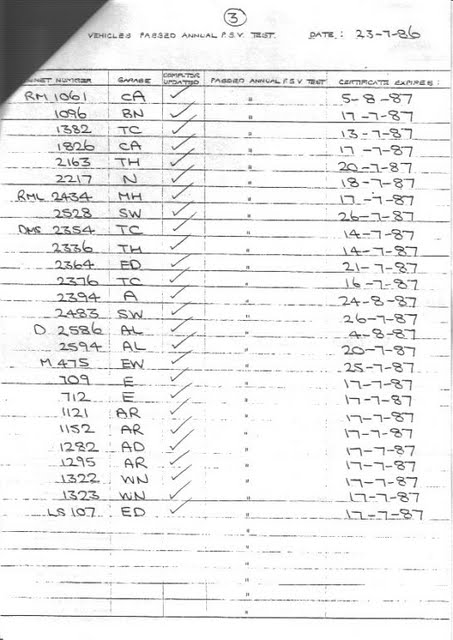 3
VEHICLES PASSED ANNUAL P.S.V. TEST. DATE: 23-7-86
NUMBER GARAGE COMPUTER UPDATED PASSED ANNUAL P.S.V TEST CERTIFICATE EXPIRES:
RM 1061 CA ✓ " 5-8-87
1096 BN ✓ " 17-7-87
1382 TC ✓ " 13-7-87
1826 CA ✓ " 17-7-87
2163 TH ✓ " 20-7-87
2217 N ✓ " 18-7-87
RML 2434 MH ✓ " 17-7-87
2528 SW ✓ " 26-7-87
DMS 2354 TC ✓ " 14-7-87
2336 TH ✓ " 14-7-87
2364 ED ✓ " 21-7-87
2376 TC ✓ " 16-7-87
2394 A ✓ " 24-8-87
2483 SW ✓ " 26-7-87
D. 2586 AL ✓ " 4-8-87
2594 AL ✓ " 20-7-87
M 475 EW ✓ " 25-7-87
709 E ✓ " 17-7-87
712 E ✓ " 17-7-87
1121 AR ✓ " 17-7-87
1152 AR ✓ " 17-7-87
1282 AD ✓ " 17-7-87
1295 AR ✓ " 17-7-87
1322 WN ✓ " 17-7-87
1323 WN ✓ " 17-7-87
LS 107 ED ✓ " 17-7-87
"
"
"
"
"
"